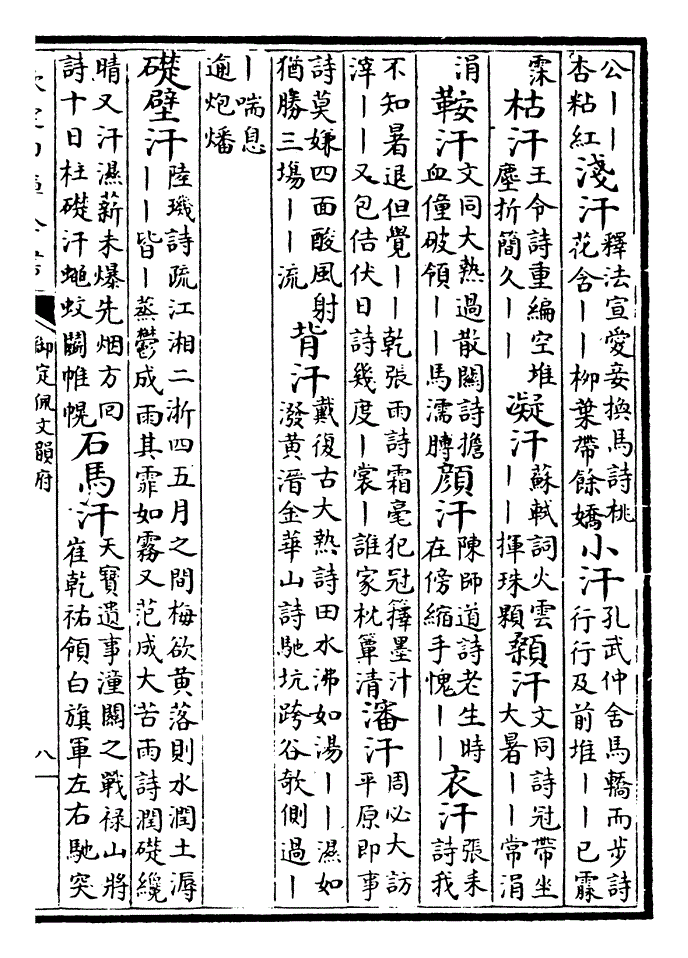 公——杏粘紅淺汗釋法宣愛妾換馬詩桃花含——柳葉帶餘嬌小汗孔武仲舍馬轎而步詩行行及前堆——已霢
霂枯汗王令詩重編空堆塵折簡久——凝汗蘇軾詞火雲——揮珠顆顙汗文同詩冠帶坐大暑——常涓
涓鞍汗文同大熱過散關詩擔血僮破領——馬濡膊顔汗陳師道詩老生時在傍縮手愧——衣汗張耒詩我
不知暑退但覺——乾張雨詩霜毫犯冠籜墨汁滓——又包佶伏日詩幾度—裳—誰家枕簟清瀋汗周必大訪平原即事
詩莫嫌四面酸風射猶勝三塲——流背汗戴復古大熱詩田水沸如湯——濕如潑黃溍金華山詩馳坑跨谷欹側過—
—喘息逾炮燔
礎壁汗陸璣詩疏江湘二浙四五月之間梅欲黃落則水潤土溽——皆—蒸鬱成雨其霏如霧又范成大苦雨詩潤礎纔
晴又汗濕薪未爆先烟方回詩十日柱礎汗蠅蚊鬭帷幌石馬汗天寶遺事潼關之戰祿山將崔乾祐領白旗軍左右馳突
御定佩文韻府
八